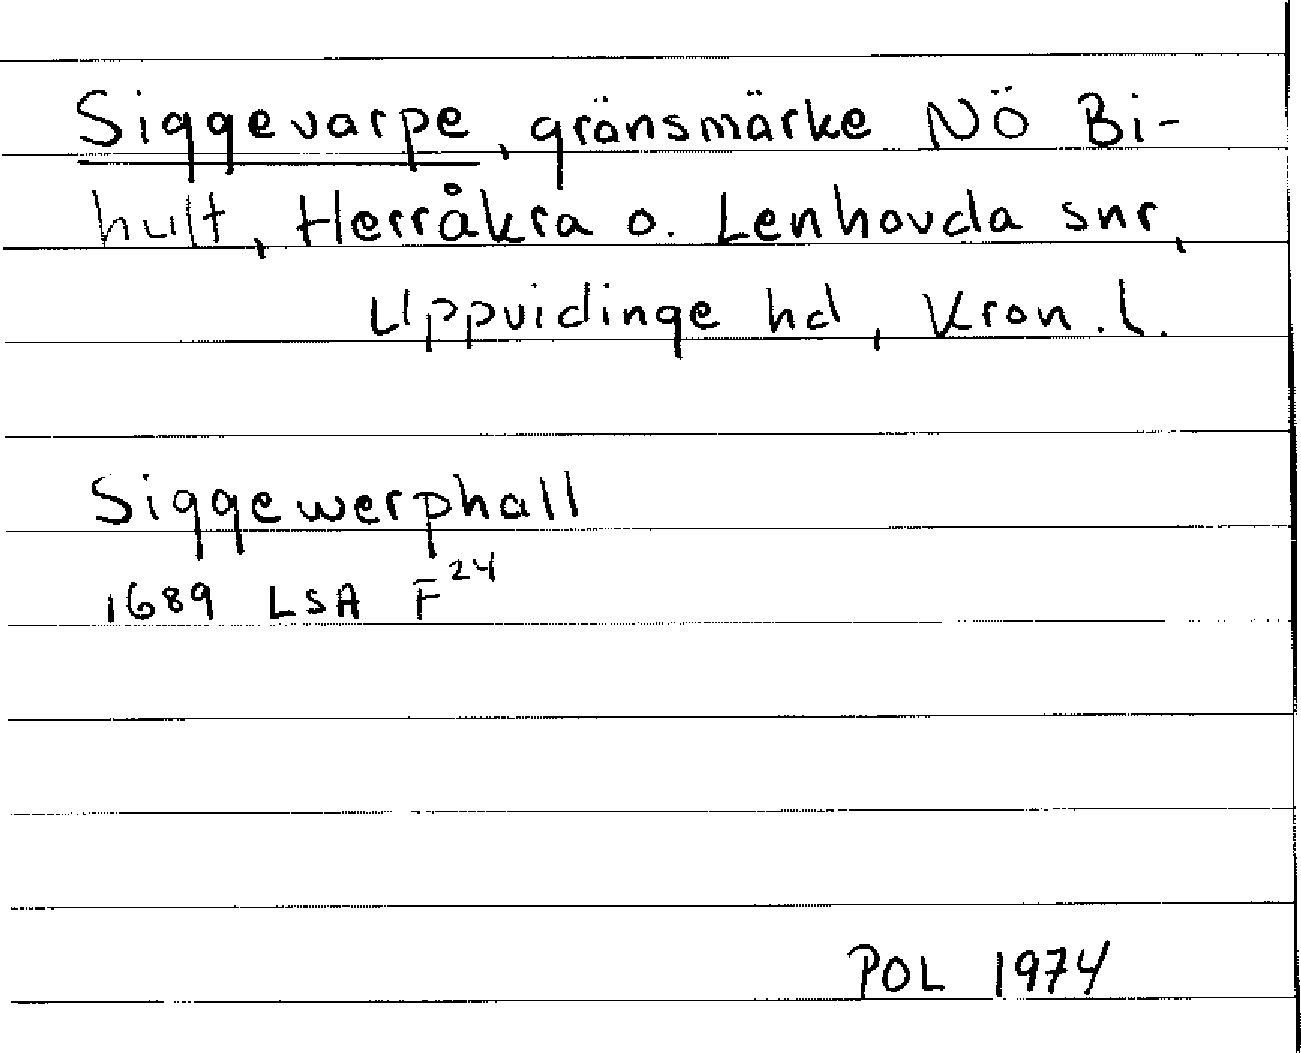 Siggevarpe, gränsmärke NÖ Bi-
hult, Herråkra o. Lenhovda snr,
Uppvidinge hd, Kron. l.
Siggewerphall
1689 LSA F²⁴
POL 1974